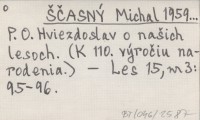 ŠČASNÝ Michal 1959...
P. O. Hviezdoslav o našich
lesoch. (K 110. výročiu na-
rodenia.) - Les 15, nr 3:
95-96.